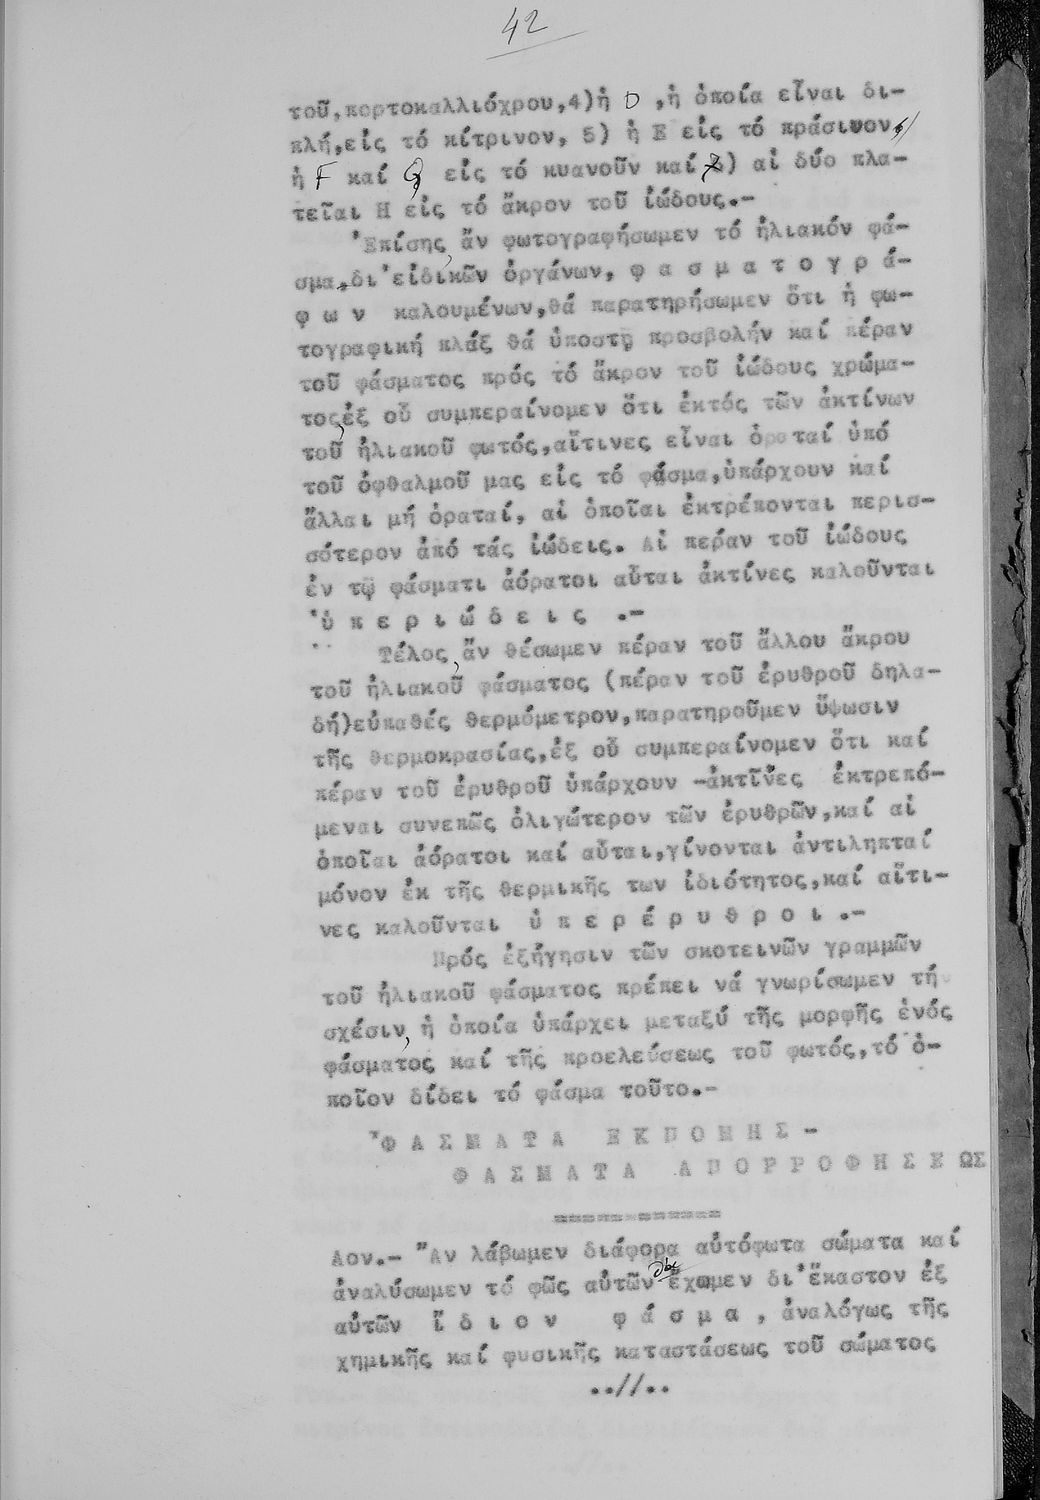 42
τοῦ,πορτοκαλλιόχρου,4)ἡ D ,ἡ ὁποία εἶναι δι-
πλή,εἰς τό κίτρινον, 5) ἡ E εἰς τό πράσινον,
ἡ F καί G εἰς τό κυανοῦν καί 7) αἱ δύο πλα-
τεῖαι H εἰς τό ἄκρον τοῦ ἰώδους.-
Ἐπίσης, ἄν φωτογραφήσωμεν τό ἡλιακόν φά-
σμα,δι'εἰδικῶν ὀργάνων, φ α σ μ α τ ο γ ρ ά-
φ ω ν καλουμένων,θά παρατηρήσωμεν ὅτι ἡ φω-
τογραφική πλάξ θά ὑποστῇ προσβολήν καί πέραν
τοῦ φάσματος πρός τό ἄκρον τοῦ ἰώδους χρώμα-
τος,ἐξ οὗ συμπεραίνομεν ὅτι ἐκτός τῶν ἀκτίνων
τοῦ ἡλιακοῦ φωτός,αἵτινες εἶναι ὁραταί ὑπό
τοῦ ὀφθαλμοῦ μας εἰς τό φάσμα,ὑπάρχουν καί
ἄλλαι μή ὁραταί, αἱ ὁποῖαι ἐκτρέπονται περισ-
σότερον ἀπό τάς ἰώδεις. Αἱ πέραν τοῦ ἰώδους
ἐν τῷ φάσματι ἀόρατοι αὗται ἀκτίνες καλοῦνται
ὑ π ε ρ ι ώ δ ε ι ς .-
Τέλος, ἄν θέσωμεν πέραν τοῦ ἄλλου ἄκρου
τοῦ ἡλιακοῦ φάσματος (πέραν τοῦ ἐρυθροῦ δηλα-
δή)εὐπαθές θερμόμετρον,παρατηροῦμεν ὕψωσιν
τῆς θερμοκρασίας,ἐξ οὗ συμπεραίνομεν ὅτι καί
πέραν τοῦ ἐρυθροῦ ὑπάρχουν -ἀκτῖνες ἐκτρεπό-
μεναι συνεπῶς ὀλιγώτερον τῶν ἐρυθρῶν,καί αἱ
ὁποῖαι ἀόρατοι καί αὗται,γίνονται ἀντιληπταί
μόνον ἐκ τῆς θερμικῆς των ἰδιότητος,καί αἵτι-
νες καλοῦνται ὑ π ε ρ έ ρ υ θ ρ ο ι .-
Πρός ἐξήγησιν τῶν σκοτεινῶν γραμμῶν
τοῦ ἡλιακοῦ φάσματος πρέπει νά γνωρίσωμεν τή
σχέσιν, ἡ ὁποία ὑπάρχει μεταξύ τῆς μορφῆς ἑνός
φάσματος καί τῆς προελεύσεως τοῦ φωτός,τό ὁ-
ποῖον δίδει τό φάσμα τοῦτο.-
Φ Α Σ Μ Α Τ Α Ε Κ Π Ο Μ Π Η Σ -
Φ Α Σ Μ Α Τ Α Α Π Ο Ρ Ρ Ο Φ Η Σ Ε ΩΣ
==================
Αον.- Ἄν λάβωμεν διάφορα αὐτόφωτα σώματα καί
ἀναλύσωμεν τό φῶς αὐτῶν θά ἔχωμεν δι'ἕκαστον ἐξ
αὐτῶν ἴ δ ι ο ν φ ά σ μ α , ἀναλόγως τῆς
χημικῆς καί φυσικῆς καταστάσεως τοῦ σώματος
..//..